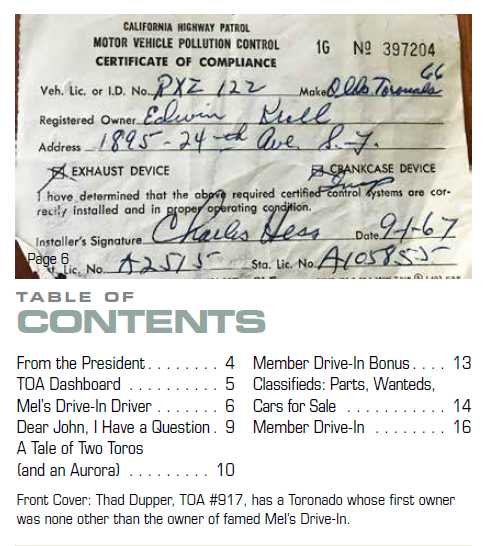 CALIFORNIA HIGHWAY PATROL
MOTOR VEHICLE POLLUTION CONTROL
CERTIFICATE OF COMPLIANCE
1G № 397204
66
Veh. Lic. or I.D. No. RXZ 122 Make Olds Toronado
Registered Owner Edwin Krell
Address 1895-24th Ave S.F.
EXHAUST DEVICE CRANKCASE DEVICE
I have determined that the above required certified control systems are cor-
rectly installed and in proper operating condition.
Installer's Signature Charles Hess Date 9-1-67
Page 6
Lic. No. A2515 Sta. Lic. No. A105855
TABLE OF
CONTENTS
From the President . . . . . . . . 4
TOA Dashboard . . . . . . . . . . 5
Mel's Drive-In Driver . . . . . . . 6
Dear John, I Have a Question . 9
A Tale of Two Toros
(and an Aurora) . . . . . . . . . 10
Member Drive-In Bonus . . . . 13
Classifieds: Parts, Wanteds,
Cars for Sale . . . . . . . . . . . 14
Member Drive-In . . . . . . . . 16
Front Cover: Thad Dupper, TOA #917, has a Toronado whose first owner
was none other than the owner of famed Mel's Drive-In.